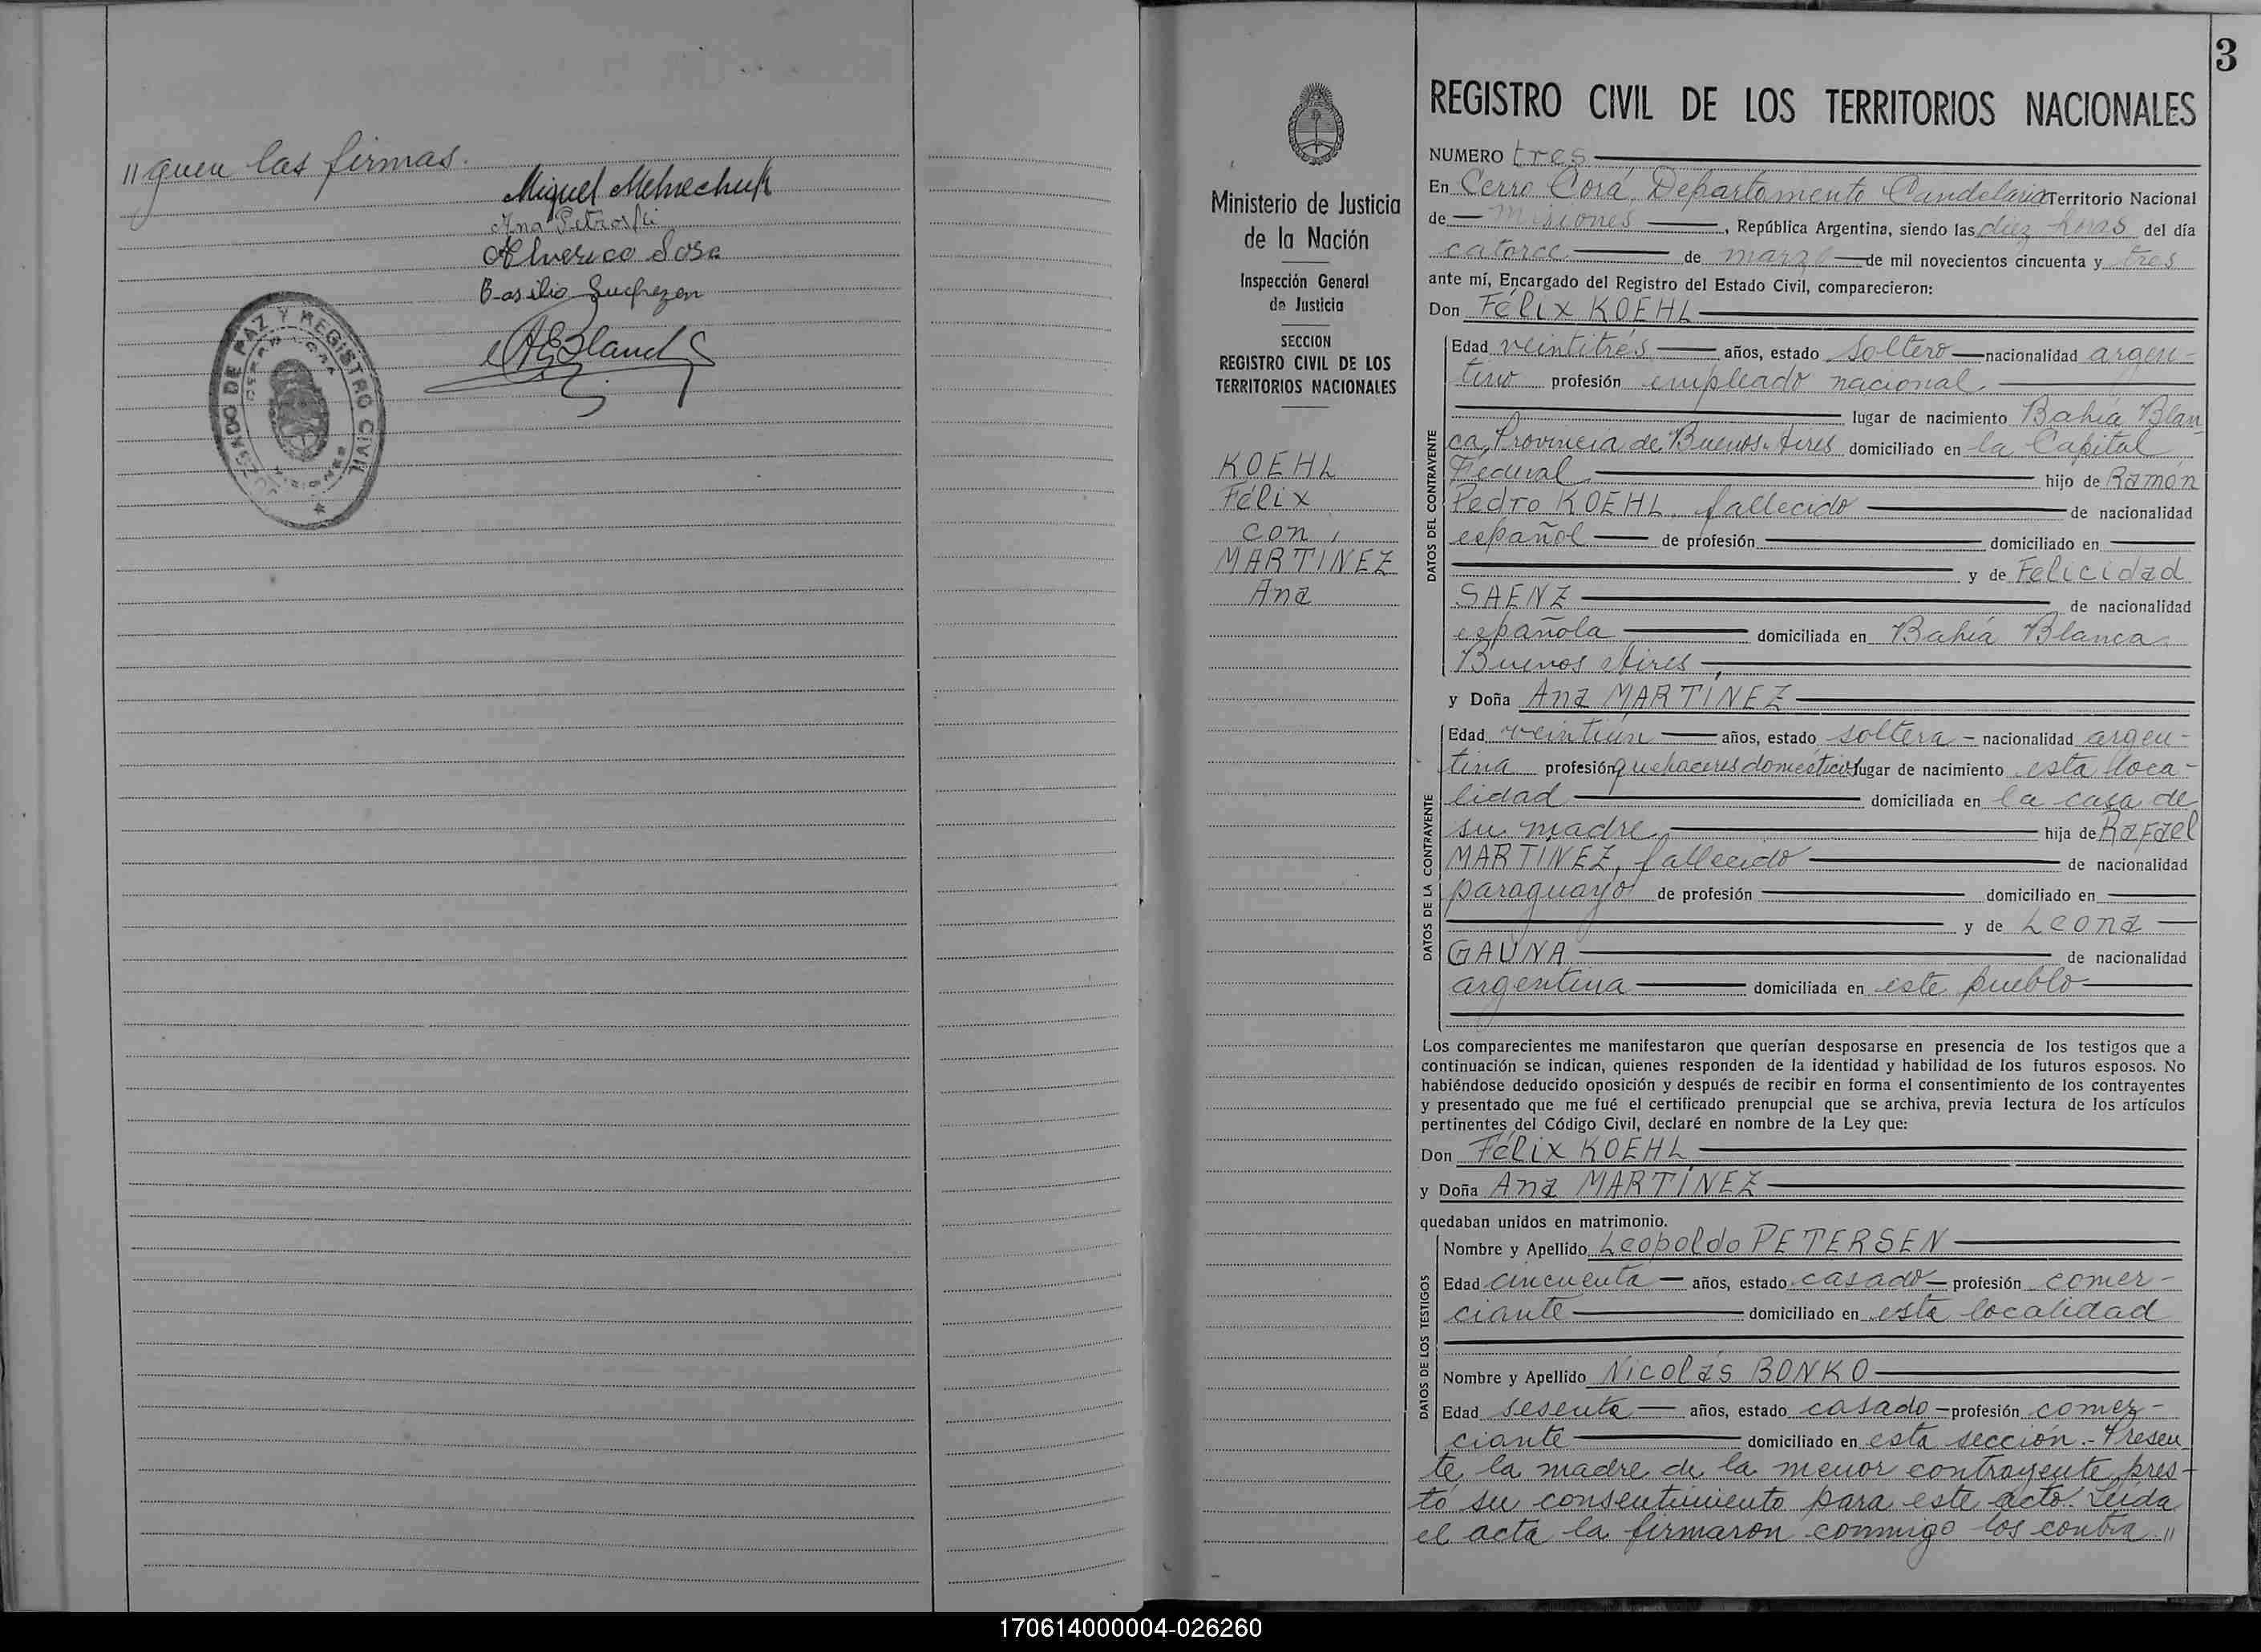 "guen las firmas.
Miguel Melnechuk
Ana Petroski
Alverico Sosa
Basilio
JUZGADO DE PAZ Y REGISTRO CIVIL
CERRO CORA
MISIONES
3
Ministerio de Justicia
de la Nación
Inspección General
de Justicia
SECCION
REGISTRO CIVIL DE LOS
TERRITORIOS NACIONALES
KOEHL
Félix
con
MARTÍNEZ
Ana
REGISTRO CIVIL DE LOS TERRITORIOS NACIONALES
NUMERO tres
En Cerro Corá, Departamento Candelaria Territorio Nacional
de Misiones, República Argentina, siendo las diez horas del día
catorce de marzo de mil novecientos cincuenta y tres
ante mí, Encargado del Registro del Estado Civil, comparecieron:
Don Félix KOEHL
DATOS DEL CONTRAYENTE
Edad veintitrés años, estado soltero nacionalidad argen-
tino profesión empleado nacional
lugar de nacimiento Bahía Blan-
ca, Provincia de Buenos Aires domiciliado en la Capital
Federal hijo de Ramón
Pedro KOEHL, fallecido de nacionalidad
español de profesión domiciliado en
y de Felicidad
SAENZ de nacionalidad
española domiciliada en Bahía Blanca
Buenos Aires
y Doña Ana MARTÍNEZ
DATOS DE LA CONTRAYENTE
Edad veintiún años, estado soltera - nacionalidad argen-
tina profesión quehaceres domésticos lugar de nacimiento esta loca-
lidad domiciliada en la casa de
su madre, hija de Rafael
MARTÍNEZ, fallecido de nacionalidad
paraguayo de profesión domiciliado en
y de Leona
GAUNA de nacionalidad
argentina domiciliada en este pueblo
Los comparecientes me manifestaron que querían desposarse en presencia de los testigos que a
continuación se indican, quienes responden de la identidad y habilidad de los futuros esposos. No
habiéndose deducido oposición y después de recibir en forma el consentimiento de los contrayentes
y presentado que me fué el certificado prenupcial que se archiva, previa lectura de los artículos
pertinentes del Código Civil, declaré en nombre de la Ley que:
Don Félix KOEHL
y Doña Ana MARTÍNEZ
quedaban unidos en matrimonio.
DATOS DE LOS TESTIGOS
Nombre y Apellido Leopoldo PETERSEN
Edad cincuenta años, estado casado profesión comer-
ciante domiciliado en esta localidad
Nombre y Apellido Nicolás BONKO
Edad sesenta años, estado casado profesión comer-
ciante domiciliado en esta sección.- Presen-
te la madre de la menor contrayente pres-
tó su consentimiento para este acto. Leída
el acta la firmaron conmigo los contra"
170614000004-026260